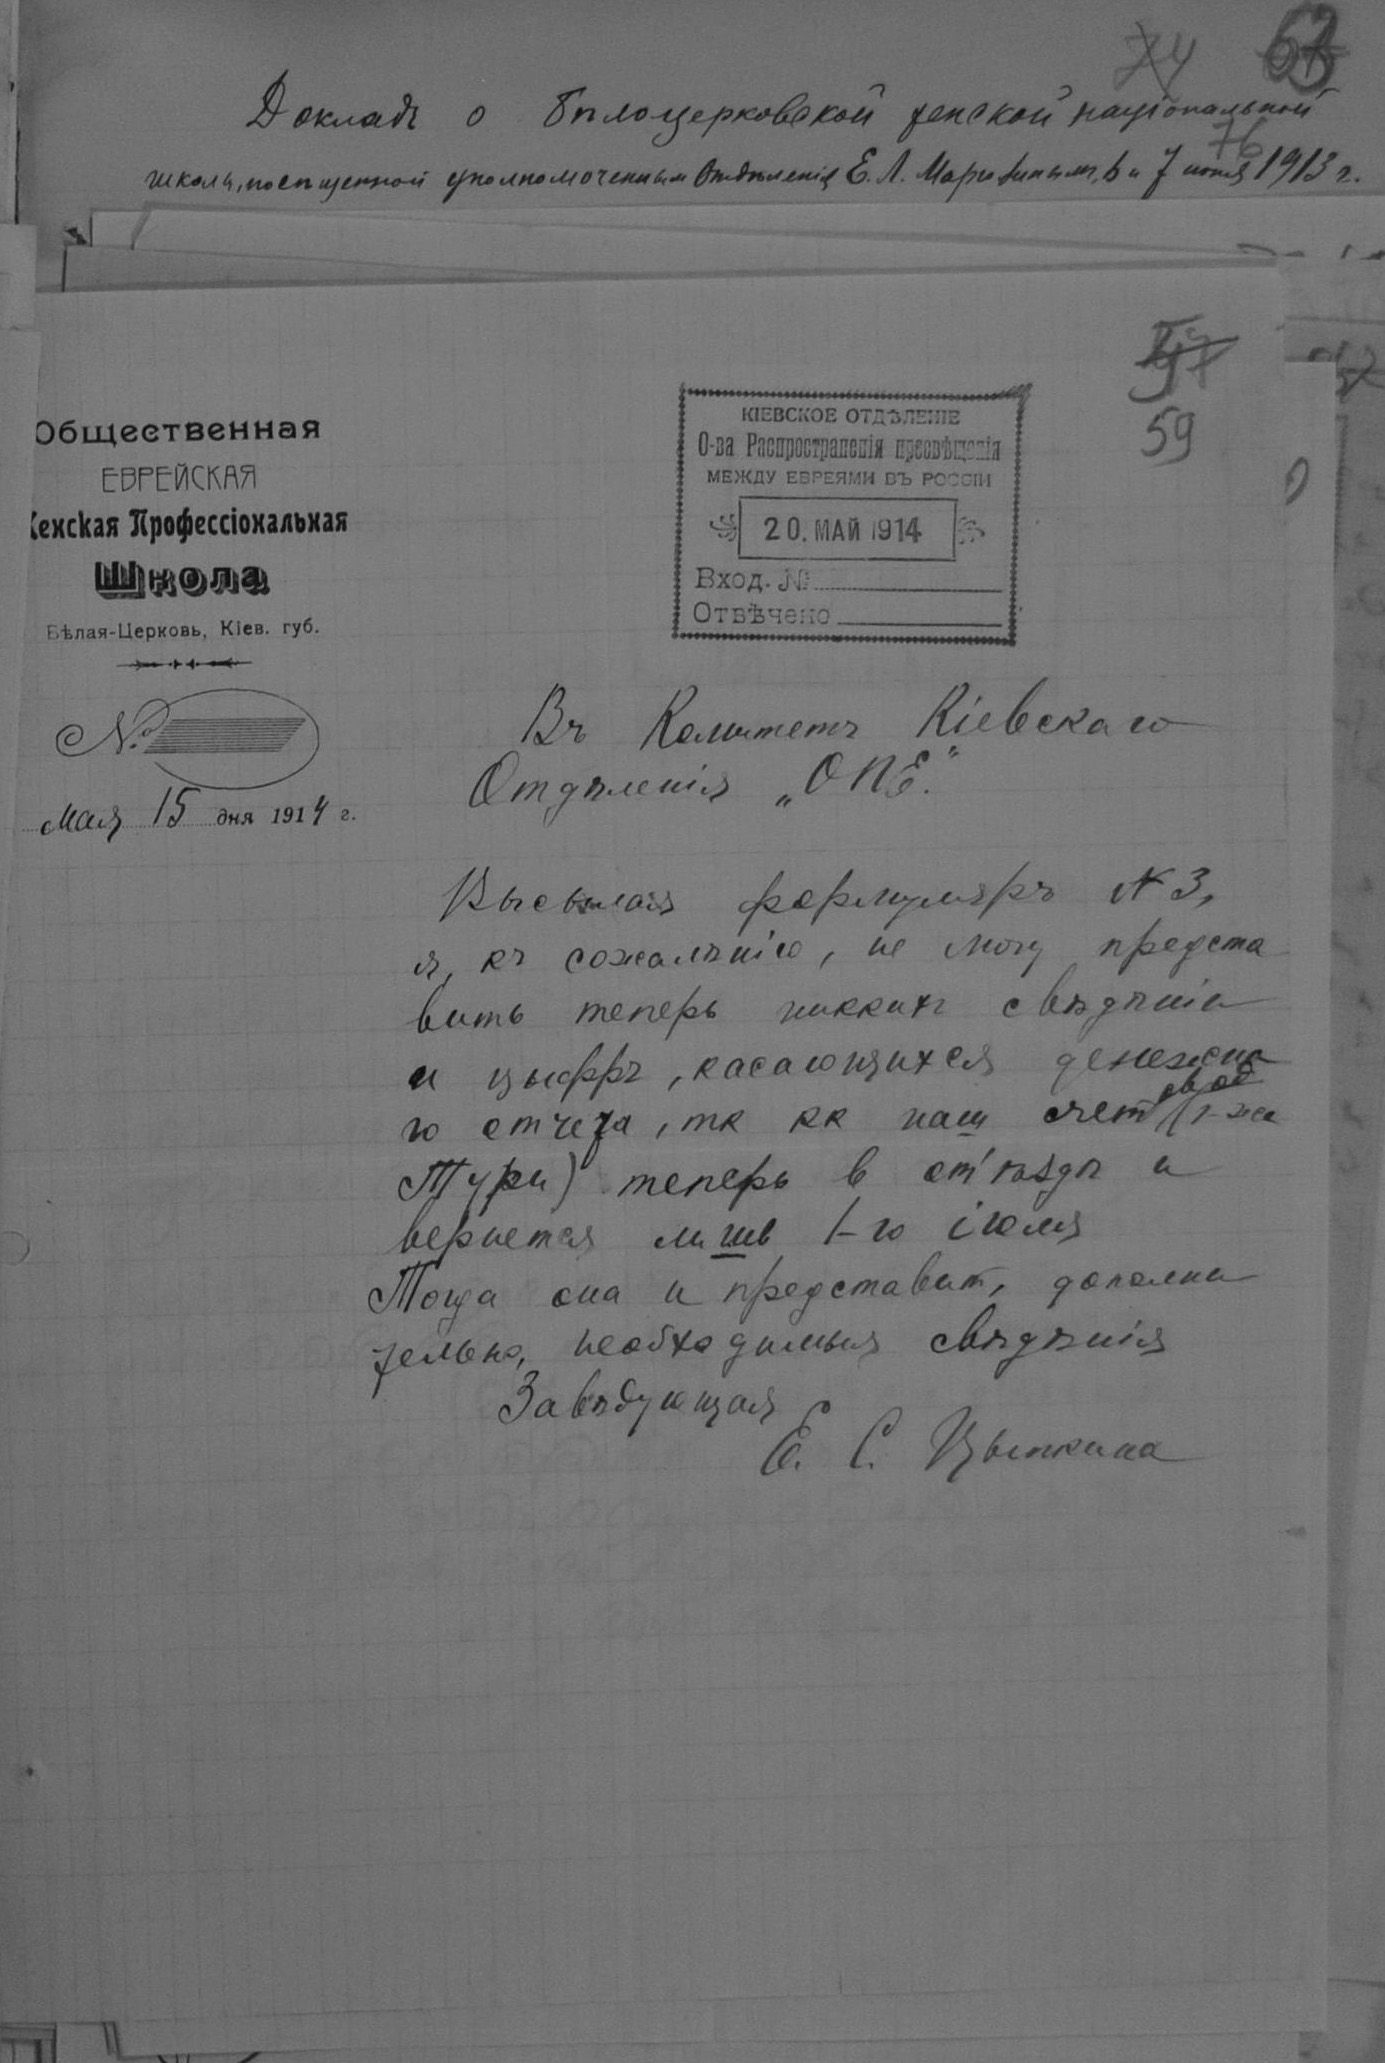 74 63
Докладъ о Бѣлоцерковской женской національной
76
школы, посѣщенной уполномоченнымъ Отдѣленія Е. Л. 6 и 7 1913 г.
57
59
Общественная
ЕВРЕЙСКАЯ
Женская Профессіональная
Школа
Бѣлая-Церковь, Кіев. губ.
№
мая 15 дня 1914 г.
КІЕВСКОЕ ОТДѢЛЕНІЕ
О-ва Распространенія просвѣщенія
МЕЖДУ ЕВРЕЯМИ ВЪ РОССІИ
20. МАЙ 1914
Вход. №
Отвѣчено
Въ Комитетъ Кіевскаго
Отдѣленія „ОПЕ."
Высылая формуляръ № 3,
я, къ сожалѣнію, не могу предста
вить теперь никких свѣдѣній
и цыфръ, касающихся денежна
го отчета, тк кк наш счетовод (г-жа
Тури) теперь в от'ѣздѣ и
вернется лишь 1-го іюля
Тогда она и представит, дополни
тельно, необходимыя свѣдѣнія
Завѣдующая
Е. С. Цыпкина